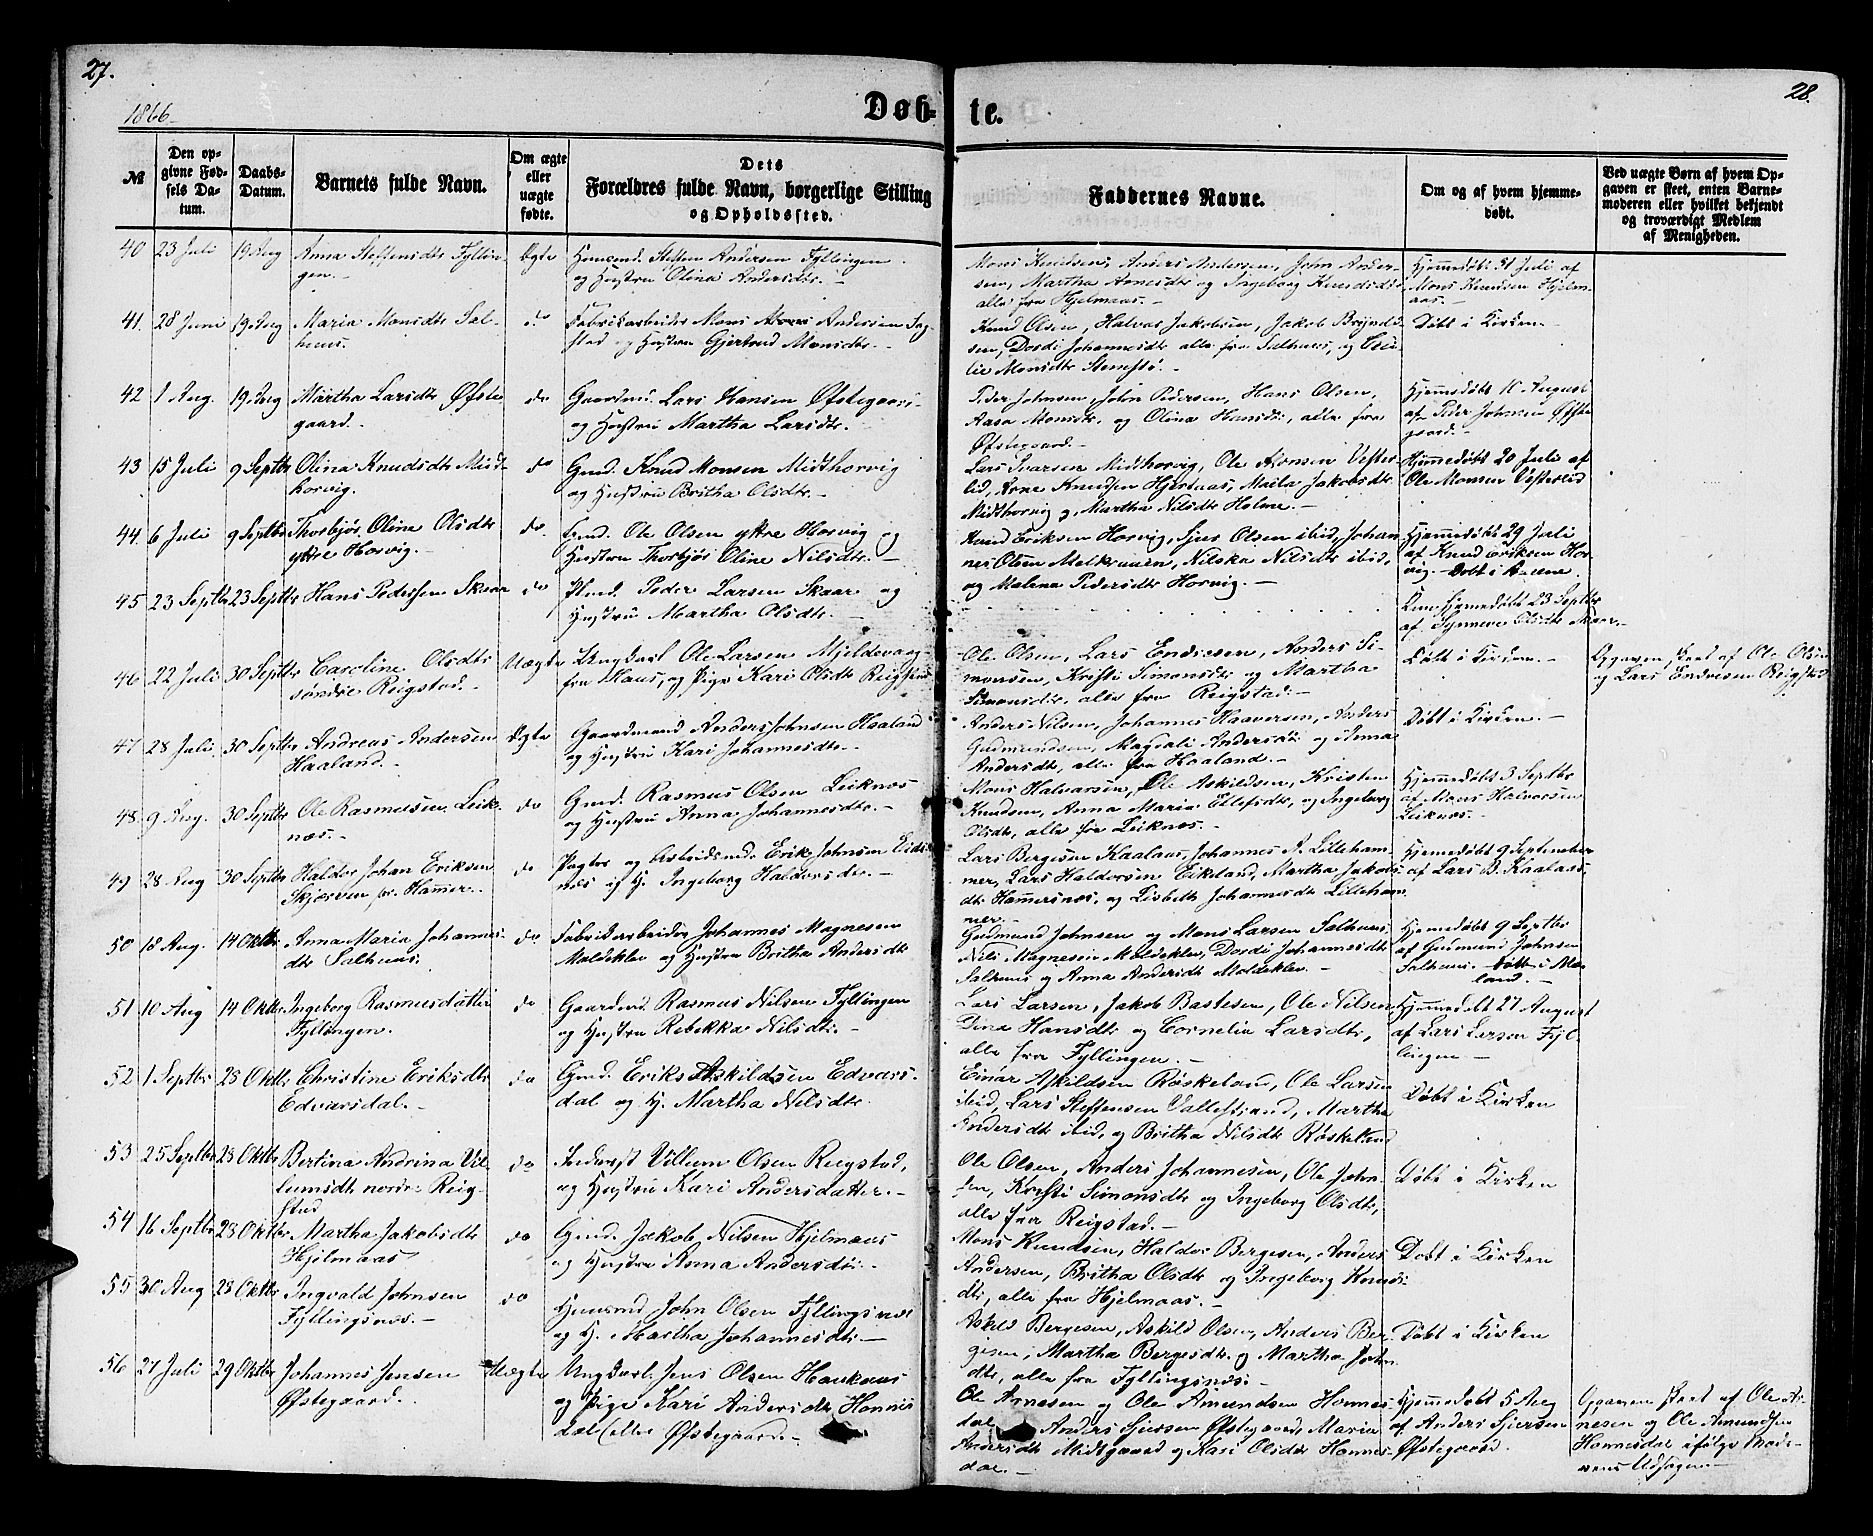 27.
28.
1866
Døb-te.
№
Den opgivne Fødsels Datum.
Daabs-Datum.
Barnets fulde Navn.
Om ægte eller uægte fødte.
Dets Forældres fulde Navn, borgerlige Stilling og Opholdssted.
Faddernes Navne.
Om og af hvem hjemmedøbt.
Ved uægte Børn af hvem Opgaven er skeet, enten Barnemoderen eller hvilket bekjendt og troværdigt Medlem af Menigheden.
40 23 Juli 19 Aug Anna Steffensdtr Fyllingen.- Ægte Huusmd. Steffen Andersen Fyllingen og Hustru Olina Andersdtr.- Mons Knudsen, Anders Andersen, John Andersen, Martha Arnesdtr og Ingeborg Knudsdtr alle fra Hjelmaas.- Hjemmedøbt 31 Juli af Mons Knudsen Hjelmaas.-
41. 28 Juni 19 Aug Maria Monsdtr Salhuus. do Fabrikarbeider Mons Andersen Sagstad og Hustru Gjertrud Monsdtr.- Knud Olsen, Halvor Jakobsen, Jakob Bryndsen, Dordi Johannesdtr alle fra Salhuus, og Monsdtr Døbt i Kirken.-
42 1 Aug. 19 Aug Martha Larsdtr Øfstegaard.- do Gaardmd. Lars Hansen Øfstegaard og Hustru Martha Larsdtr.- Peder Johnsen, John Pedersen, Hans Olsen, Aasa Monsdtr, og Olina Hansdtr, alle fra Øfstegaard.- Hjemmedøbt 10 August af Peder Johnsen Øfstegaard.-
43 15 Juli 9 Septbr Olina Knudsdtr Midthorvig. do Gmd. Knud Monsen Midthorvig og Hustru Britha Olsdtr.- Lars Ivarsen Midthorvig, Ole Monsen Vesterlid, Arne Knudsen Hjertaas, Jakobsdtr Midthorvig og Martha Nilsdtr Holme.- Hjemmedøbt 20 Juli af Ole Monsen Vesterlid
44. 6 Juli 9 Septbr Thorbjør Oline Olsdtr ytre Horvig.- do. Gmd. Ole Olsen ytre Horvig og Hustru Thorbjør Oline Nilsdtr.- Knud Eriksen Horvig, Sjur Olsen ibid, Johannes Olsen, Nilska Nilsdtr ibid, og Malena Pedersdtr Horvig.- Hjemmedøbt 29 Juli af Knud Eriksen Horvig.- Døbt i
45 23 Septbr 23 Septbr Hans Pedersen Skaar do Peder Larsen Skaar og Hustru Martha Olsdtr.- Kun hjemmedøbt 23 Septbr af Synneve Olsdtr Skaar.-
46 22 Juli 30 Septbr Caroline Olsdtr søndre Reigstad.- Uægte Ungkarl Ole Larsen Mjeldevaag fra Haus, og Pige Kari Olsdtr Reigstad Ole Olsen, Lars Endresen, Anders Simonsen, Kristi Simonsdtr og Martha Simonsdtr, alle fra Reigstad.- Døbt i Kirken.- Opgaven skeet af Ole Olsen og Lars Endresen Reigstad
47 28 Juli 30 Septbr Andreas Andersen Haaland.- Ægte Gaardmand Anders Johnsen Haaland og Hustru Kari Johannesdtr.- Anders Nilsen, Johannes Haaversen, Anders Gudmundsen, Magdali Andersdtr og Andersdtr, alle fra Haaland.- Døbt i Kirken.-
48. 9 Aug. 30 Septbr Ole Rasmussen Leiknæs.- do Gmd. Rasmus Olsen Leiknæs og Hustru Anna Johannesdtr.- Mons Halvarsen, Ole Askildsen, Kristen Knudsen, Anna Maria Ellefsdtr, og Ingeborg Olsdtr, alle fra Leiknæs.- Hjemmedøbt 3 Septbr af Mons Halvorsen Leiknæs.-
49 28 Aug 30 Septbr Haldor Johan Eriksen Skjerven pr. Hammer. do Pagter og Arbeidsmd. Erik Johnsen og H. Ingeborg Haldorsdtr.- Lars Bergesen Kaalaas, Johannes A. Lillehammer, Lars Haldorsen Eikeland, Martha Jakobsdtr Hamersnæs, og Lisbeth Johannesdtr Lillehammer.- Hjemmedøbt 9 September af Lars B. Kaalaas
50 18 Aug. 14 Oktbr Anna Maria Johannesdtr Salhuus. do Fabrikarbeider Johannes Magnesen Moldeklev og Hustru Britha Andersdtr Gudmund Johnsen og Mons Larsen Salhuus, Nils Magnesen Moldeklev, Dordi Johannesdtr Salhuus og Anna Andersdtr Moldeklev.- Hjemmedøbt 9 Septbr af Gudmund Johnsen Salhuus. Døbt i Meland.-
51 10 Aug 14 Oktbr Ingeborg Rasmusdatter Fyllingen. do Gaardmd. Rasmus Nilsen Fyllingen og Hustru Rebekka Nilsdtr.- Lars Larsen, Jakob Bastesen, Ole Nilsen, Dina Hansdtr og Cornelia Larsdtr, alle fra Fyllingen.- Hjemmedøbt 27 August af Lars Larsen Fyllingen-
52 1 Septbr 28 Oktbr Christine Eriksdtr Edvarsdal.- do Gmd. Erik Askildsen Edvarsdal og H. Martha Nilsdtr. Einar Askildsen Røskeland, Ole Larsen ibid, Lars Steffensen Vallestrand, Martha Andersdtr ibid, og Britha Nilsdtr Røskeland Døbt i Kirken
53 25 Septbr 28 Oktbr Bertina Andrina Villumsdtr nordre Reigstad do Inderst Villum Olsen Reigstad, og Hustru Kari Andersdatter.- Ole Olsen, Anders Johannesen, Ole Johnsen, Kristi Simonsdtr og Ingeborg Olsdtr, alle fra Reigstad.- Døbt i Kirken
54 16 Septbr 28 Oktbr Martha Jakobsdtr Hjelmaas do Gmd. Jakob Nilsen Hjelmaas og Hustru Anna Andersdtr.- Mons Knudsen, Haldor Bergesen, Anders Andersen, Britha Olsdtr og Ingeborg Knudsdtr, alle fra Hjelmaas.- Døbt i Kirken
55 30 Aug 28 Oktbr Ingvald Johnsen Fyllingsnes.- do Huusmd John Olsen Fyllingsnæs og H. Martha Johannesdtr.- Askild Bergesen, Askild Olsen, Anders Bergesen, Martha Bergesdtr og Martha Johnsdtr, alle fra Fyllingsnæs.- Døbt i Kirken
56 27 Juli 29 Oktbr Johannes Jensen Øfstegaard. Uægte Ungkarl Jens Olsen Haukaas og Pige Kari Andersdtr Honnisdal (eller Øfstegaard.- Ole Arnesen og Ole Amundsen Honnesdal Anders Sjursen Øfstegaard, Maria Andersdtr Midtgaard og Kari Olsdtr Honnesdal.- Hjemmedøbt 5 Aug af Anders Sjursen Øfstegaard. Opgaven skeet af Ole Arnesen og Ole Amundsen Honnesdal ifølge Moderens Udsagn-